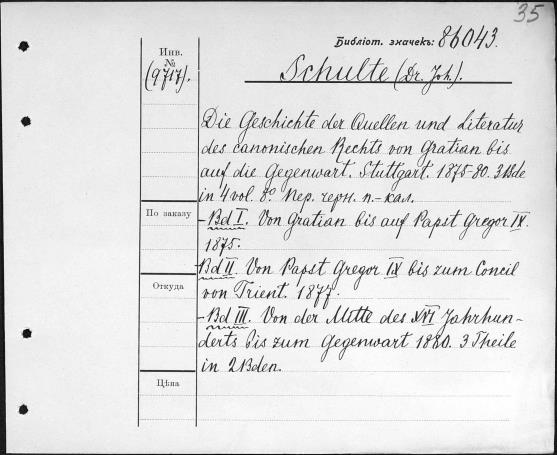 35
Библіот. значекъ: 86043.
Инв.
№
(9717).
Schulte (Dr. Joh.).
Die Geschichte der Quellen und Literatur
des canonischen Rechts von Gratian bis
auf die Gegenwart. Stuttgart. 1875-80. 3 Bde
in 4 vol. 8° Пер. черн. п.-кал.
По заказу
- Bd I. Von Gratian bis auf Papst Gregor IX.
1875.
Bd II. Von Papst Gregor IX bis zum Concil
Откуда
von Trient. 1877.
- Bd III. Von der Mitte des XVI Jahrhun-
derts bis zum Gegenwart 1880. 3 Theile
in 2 Bden.
Цѣна